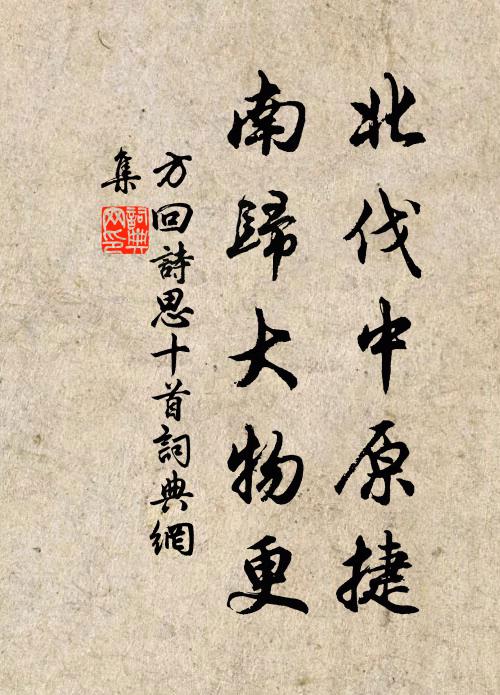 北伐中原捷
南歸大物更
方回詩思十首詞典網
集
詞典網印